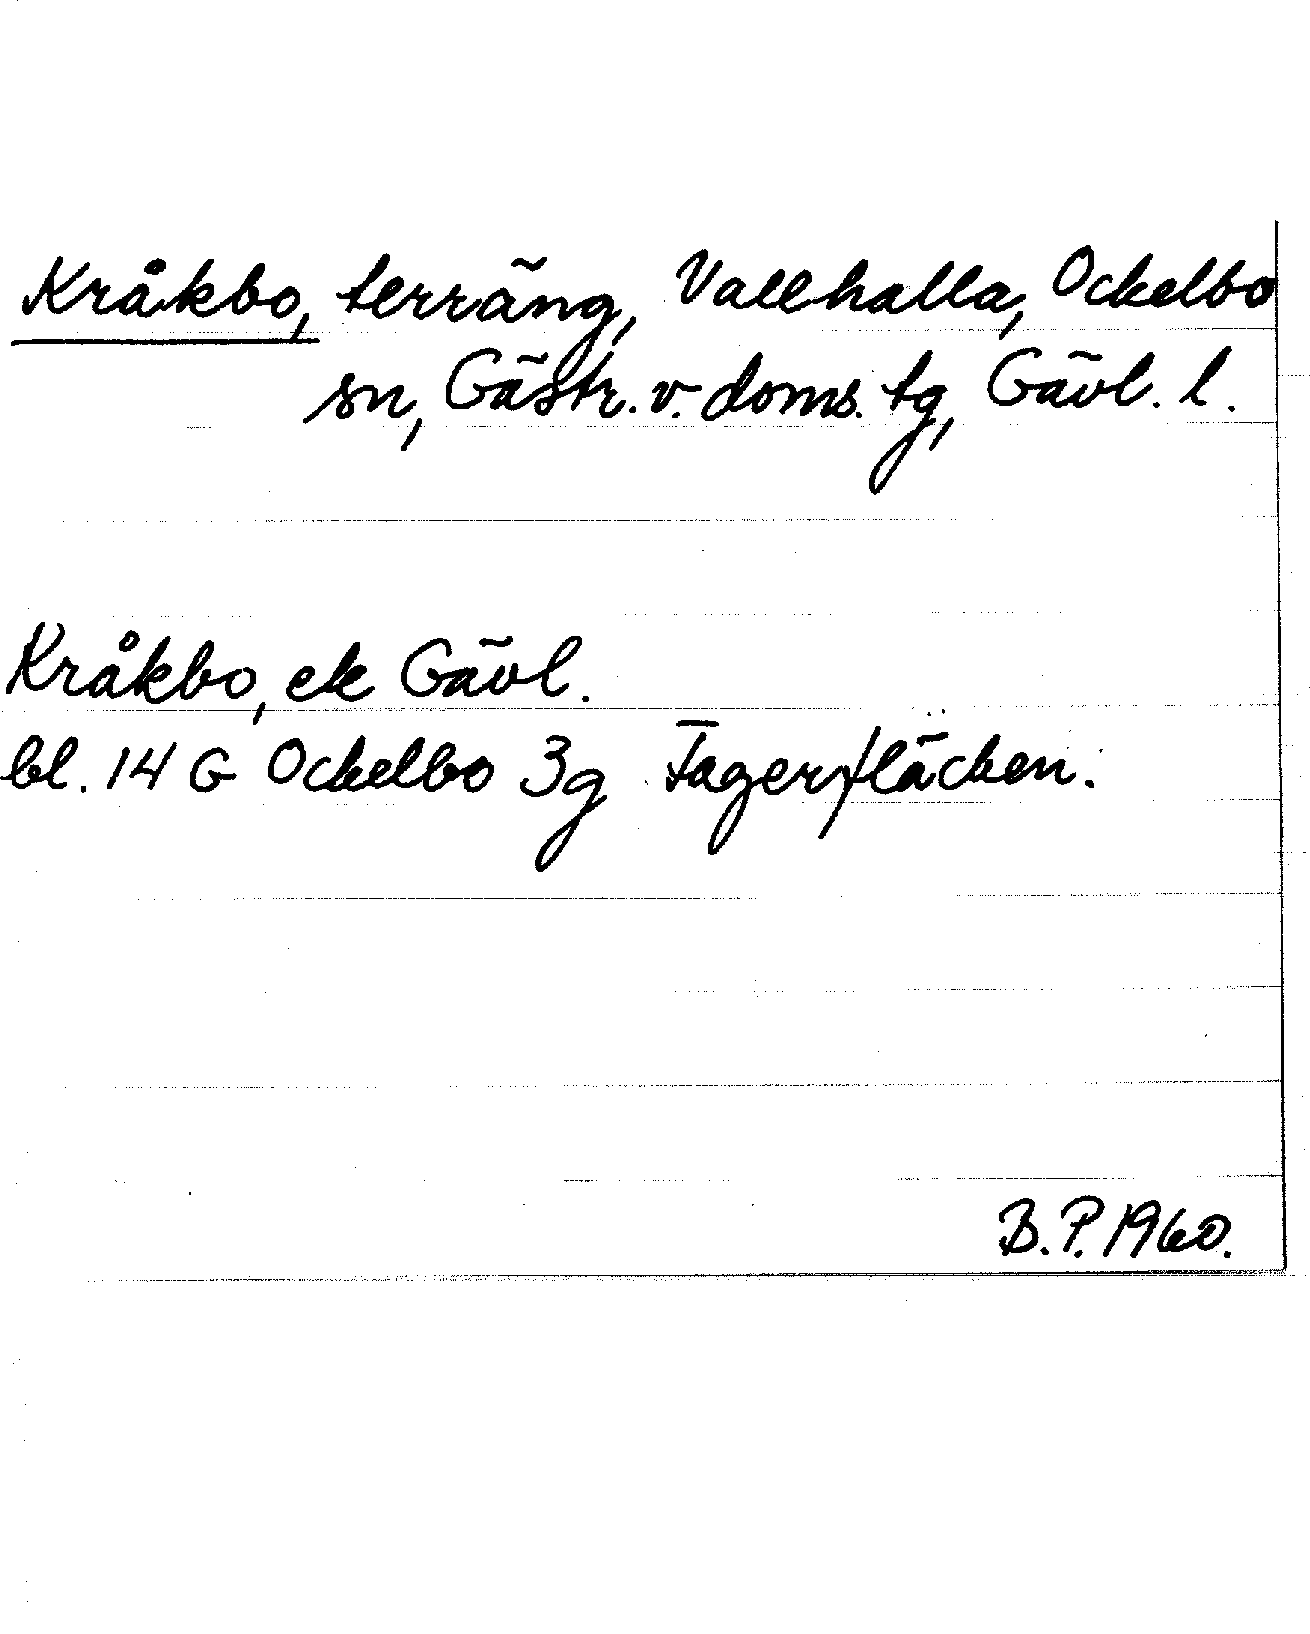 Kråkbo, terräng, Vallhalla, Ockelbo
sn, Gästr. v. doms. tg, Gävl. l.
Kråkbo, ek Gävl.
bl. 14 G Ockelbo 3g Fagerfläcken.
B.P. 1960.